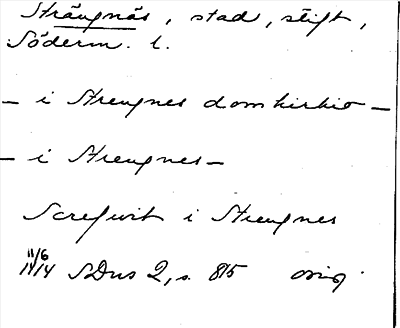 Strängnäs, stad, stift,
Söderm. l.
– i Strengnes domkirkio –
– i Strengnes –
Screfwit i Strengnes
11/6 1414 SDns 2, s. 815 orig.